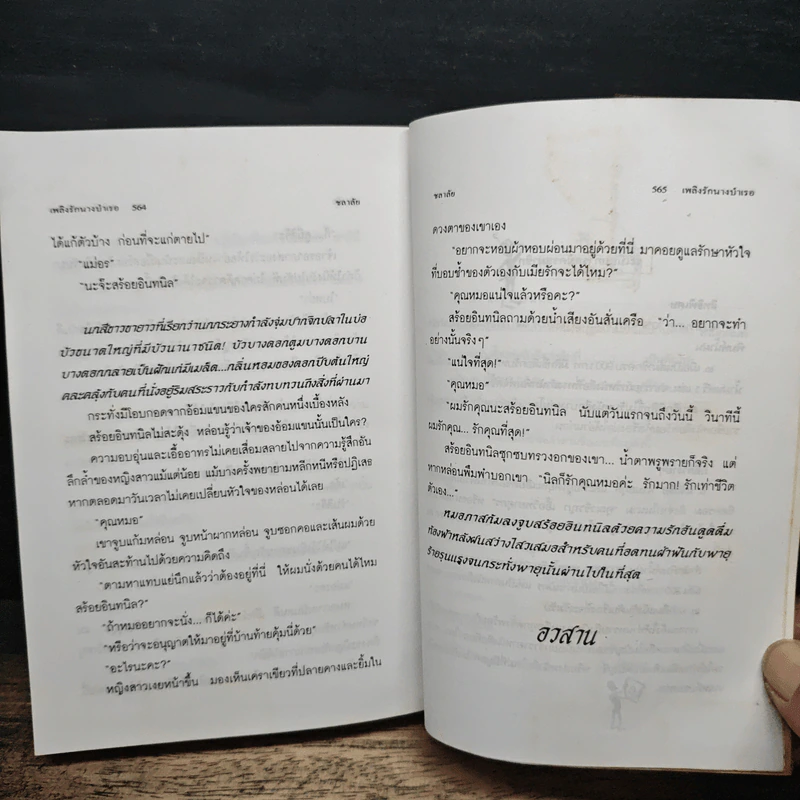 เพลิงรักนางบำเรอ 564 ชลาลัย
ได้แก้ตัวบ้าง ก่อนที่จะแก่ตายไป"
"แม่อร"
"นะจ๊ะสร้อยอินทนิล"
นกสีขาวขายาวที่เรียกว่านกกระยางกำลังจุ่มปากจิกปลาในบ่อ
บัวขนาดใหญ่ที่มีบัวนานาชนิด! บัวบางดอกตูมบางดอกบาน
บางดอกกลายเป็นฝักแก่มีเมล็ด...กลิ่นหอมของดอกปีบต้นใหญ่
คละคลุ้งกับคนที่นั่งอยู่ริมสระราวกับกำลังทบทวนถึงสิ่งที่ผ่านมา
กระทั่งมีโอบกอดจากอ้อมแขนของใครสักคนหนึ่งเบื้องหลัง
สร้อยอินทนิลไม่สะดุ้ง หล่อนรู้ว่าเจ้าของอ้อมแขนนั้นเป็นใคร?
ความอบอุ่นและเอื้ออาทรไม่เคยเสื่อมสลายไปจากความรู้สึกอัน
ลึกล้ำของหญิงสาวแม้แต่น้อย แม้บางครั้งพยายามหลีกหนีหรือปฏิเสธ
หากตลอดมาวันเวลาไม่เคยเปลี่ยนหัวใจของหล่อนได้เลย
"คุณหมอ"
เขาจูบแก้มหล่อน จูบหน้าผากหล่อน จูบซอกคอและเส้นผมด้วย
หัวใจอันสะท้านไปด้วยความคิดถึง
"ตามหาแทบแย่นึกแล้วว่าต้องอยู่ที่นี่ ให้ผมนั่งด้วยคนได้ไหม
สร้อยอินทนิล?"
"ถ้าหมออยากจะนั่ง... ก็ได้ค่ะ"
"หรือว่าจะอนุญาตให้มาอยู่ที่บ้านท้ายคุ้มนี่ด้วย"
"อะไรนะคะ?"
หญิงสาวเงยหน้าขึ้น มองเห็นเคราเขียวที่ปลายคางและยิ้มใน
ชลาลัย 565 เพลิงรักนางบำเรอ
ดวงตาของเขาเอง
"อยากจะหอบผ้าหอบผ่อนมาอยู่ด้วยที่นี่ มาคอยดูแลรักษาหัวใจ
ที่บอบช้ำของตัวเองกับเมียรักจะได้ไหม?"
"คุณหมอแน่ใจแล้วหรือคะ?"
สร้อยอินทนิลถามด้วยน้ำเสียงอันสั่นเครือ "ว่า... อยากจะทำ
อย่างนั้นจริงๆ"
"แน่ใจที่สุด!"
"คุณหมอ"
"ผมรักคุณนะสร้อยอินทนิล นับแต่วันแรกจนถึงวันนี้ วินาทีนี้
ผมรักคุณ... รักคุณที่สุด!"
สร้อยอินทนิลซุกซบทรวงอกของเขา... น้ำตาพรูพรายก็จริง แต่
หากหล่อนพึมพำบอกเขา "นิลก็รักคุณหมอค่ะ รักมาก! รักเท่าชีวิต
ตัวเอง..."
หมอภาสก้มลงจูบสร้อยอินทนิลด้วยความรักอันดูดดื่ม
ท้องฟ้าหลังฝนสว่างไสวเสมอสำหรับคนที่อดทนฝ่าฟันกับพายุ
ร้ายรุนแรงจนกระทั่งพายุนั้นผ่านไปในที่สุด
อวสาน